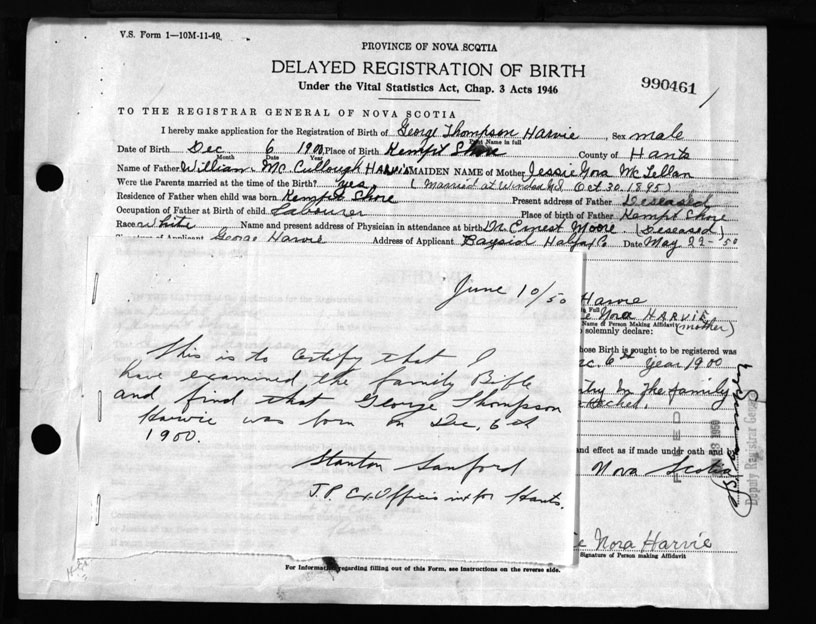 V.S. Form 1—10M-11-49.
PROVINCE OF NOVA SCOTIA
DELAYED REGISTRATION OF BIRTH
Under the Vital Statistics Act, Chap. 3 Acts 1946
990461
TO THE REGISTRAR GENERAL OF NOVA SCOTIA
I hereby make application for the Registration of Birth of George Thompson Harvie, Sex male
Print Name in full
Date of Birth Dec 6 1900, Place of Birth Kempt Shore County of Hants
Month Date Year
Name of Father William Mc Cullough HARVIE MAIDEN NAME of Mother Jessie Nora Mc Lellan
Were the Parents married at the time of the Birth? yes (Married at Windsor Oct 30, 1895)
Residence of Father when child was born Kempt Shore Present address of Father Deseased
Occupation of Father at Birth of child Labourer Place of birth of Father Kempt Shore
Race White Name and present address of Physician in attendance at birth Dr. Ernest Moore. (Deseased)
Signature of Applicant George Harvie Address of Applicant Baysid Halfax Co Date May 22 - '50
June 10/50
This is to certify that I
have examined the family Bible
and find that George Thompson
Harvie was born on Dec. 6th
1900.
Stanton Sanford
J.P. Ex-Officio in & for Hants.
Harvie
Full
e Nora HARVIE
Name of Person Making Affidavit (mother)
solemnly declare:
hose Birth is sought to be registered was
ec. 6th Year 1900
try In The family
attached.
and effect as if made under oath and by
Nova Scotia
FILED
1950
Deputy Registrar General
e Nora Harvie
Signature of Person making Affidavit
For Information regarding filling out of this Form, see Instructions on the reverse side.